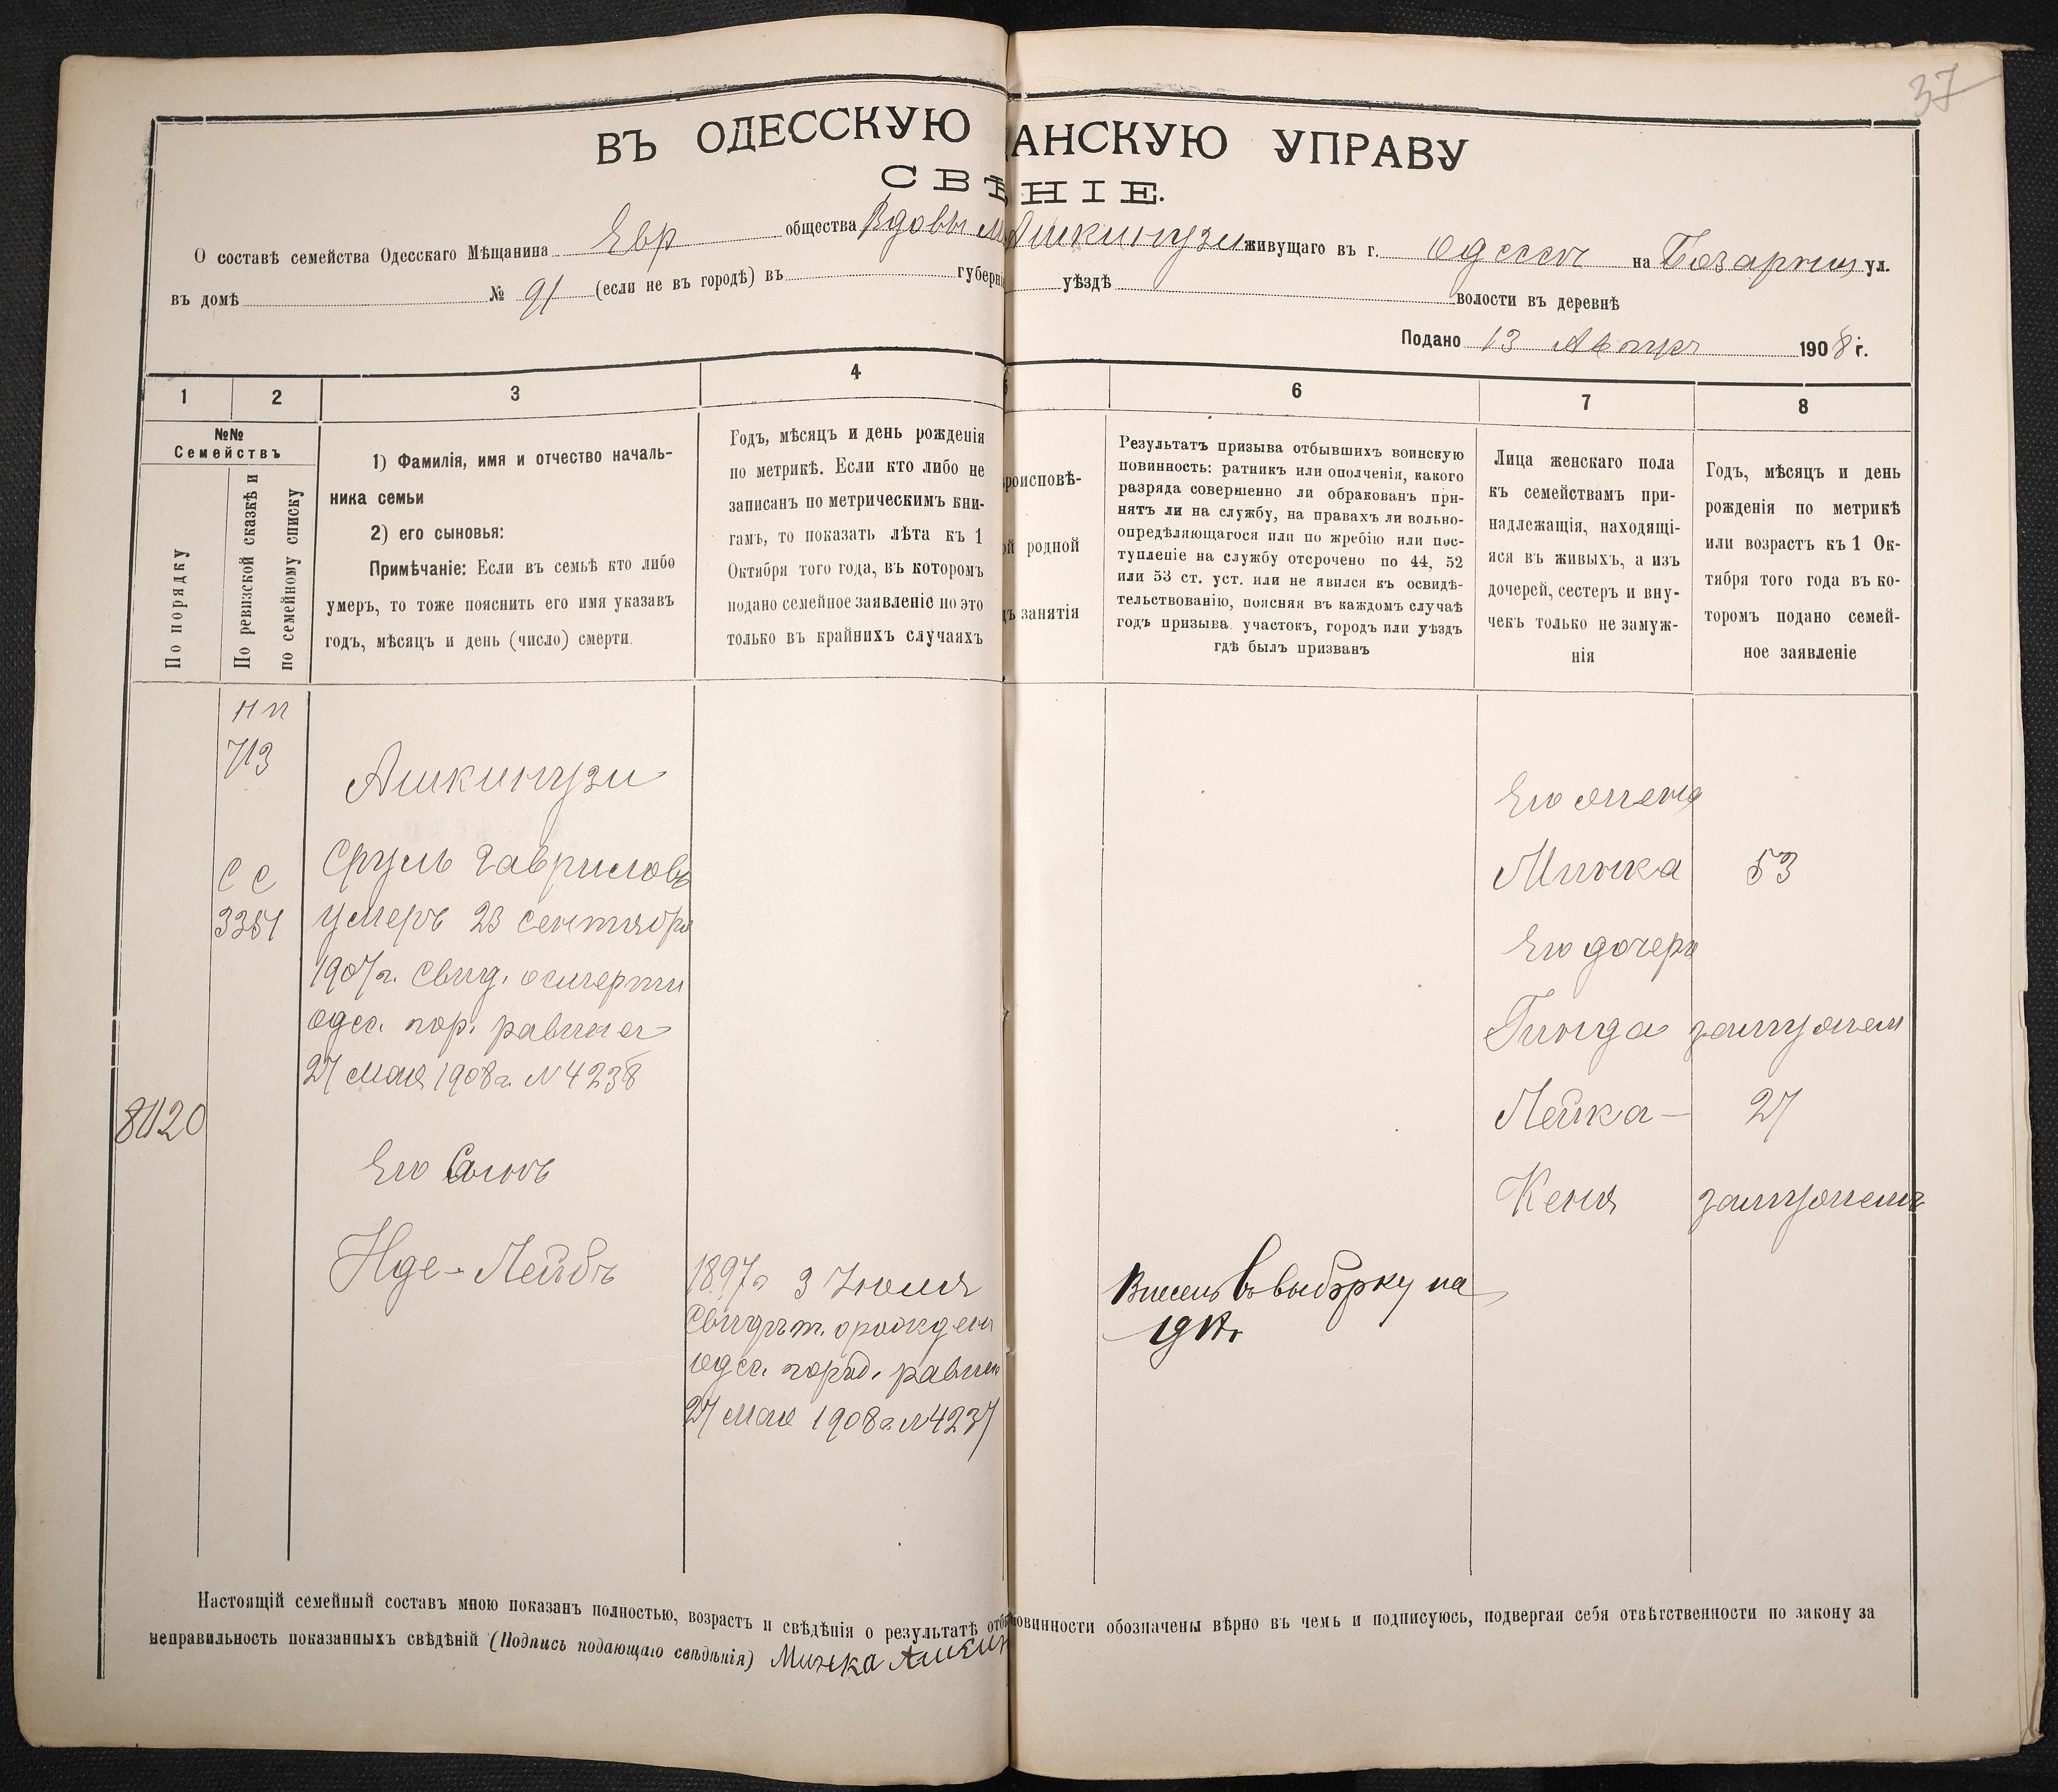 37
ВЪ ОДЕССКУЮ АНСКУЮ УПРАВУ
СВѢНІЕ.
О составѣ семейства Одесскаго Мѣщанина Евр общества Вдовы М Ашкинузи живущаго въ г. Одессѣ на Базарной ул.
въ домѣ № 91 (если не въ городѣ) въ губерні уѣздѣ волости въ деревнѣ
Подано 13 Август 1908 г.
1 2 3 4 6 7 8
№№
Семействъ
По порядку
По ревизской сказкѣ и
по семейному списку
1) Фамилія, имя и отчество началь-
ника семьи
2) его сыновья:
Примѣчаніе: Если въ семьѣ кто либо
умеръ, то тоже пояснить его имя указавъ
годъ, мѣсяцъ и день (число) смерти.
Годъ, мѣсяцъ и день рожденія
по метрикѣ. Если кто либо не
записанъ по метрическимъ кни-
гамъ, то показать лѣта къ 1
Октября того года, въ которомъ
подано семейное заявленіе но это
только въ крайнихъ случаяхъ
роисповѣ-
ой родной
дъ занятія
Результатъ призыва отбывшихъ воинскую
повинность: ратникъ или ополченія, какого
разряда совершенно ли обракованъ при-
нятъ ли на службу, на правахъ ли вольно-
опредѣляющагося или по жребію или пос-
тупленіе на службу отсрочено по 44, 52
или 53 ст. уст. или не явился къ освидѣ-
тельствованію, поясняя въ каждомъ случаѣ
годъ призыва. участокъ, городъ или уѣздъ
гдѣ былъ призванъ
Лица женскаго пола
къ семействамъ при-
надлежащія, находящі-
яся въ живыхъ, а изъ
дочерей, сестеръ и вну-
чекъ только не замуж-
нія
Годъ, мѣсяцъ и день
рожденія по метрикѣ
или возрастъ къ 1 Ок-
тября того года въ ко-
торомъ подано семей-
ное заявленіе
нп
713
СС
3351
8020
Ашкинузи
Сруль Гавриловъ
умеръ 23 Сентября
1907г. Свид. о смерти
одес. гор. раввина
27 мая 1908г. № 4238
Его Сынъ
Иде-Лейбъ
1897г 3 Июля
Свидѣт. о рожден
одес. город. раввин
27 мая 1908г № 4237
Внесенъ въ выборку на
1918г.
Его жена
Минка 53
Его дочери
Гинда замужем
Лейка - 27
Кеня замужемъ
Настоящій семейный составъ мною показанъ полностью, возрастъ и свѣдѣнія о результатѣ отбы повинности обозначены вѣрно въ чемъ и подписуюсь, подвергая себя отвѣтственности по закону за
неправильность показанныхъ свѣдѣній (Подпись подающаго свѣдѣнія) Минка Ашкин